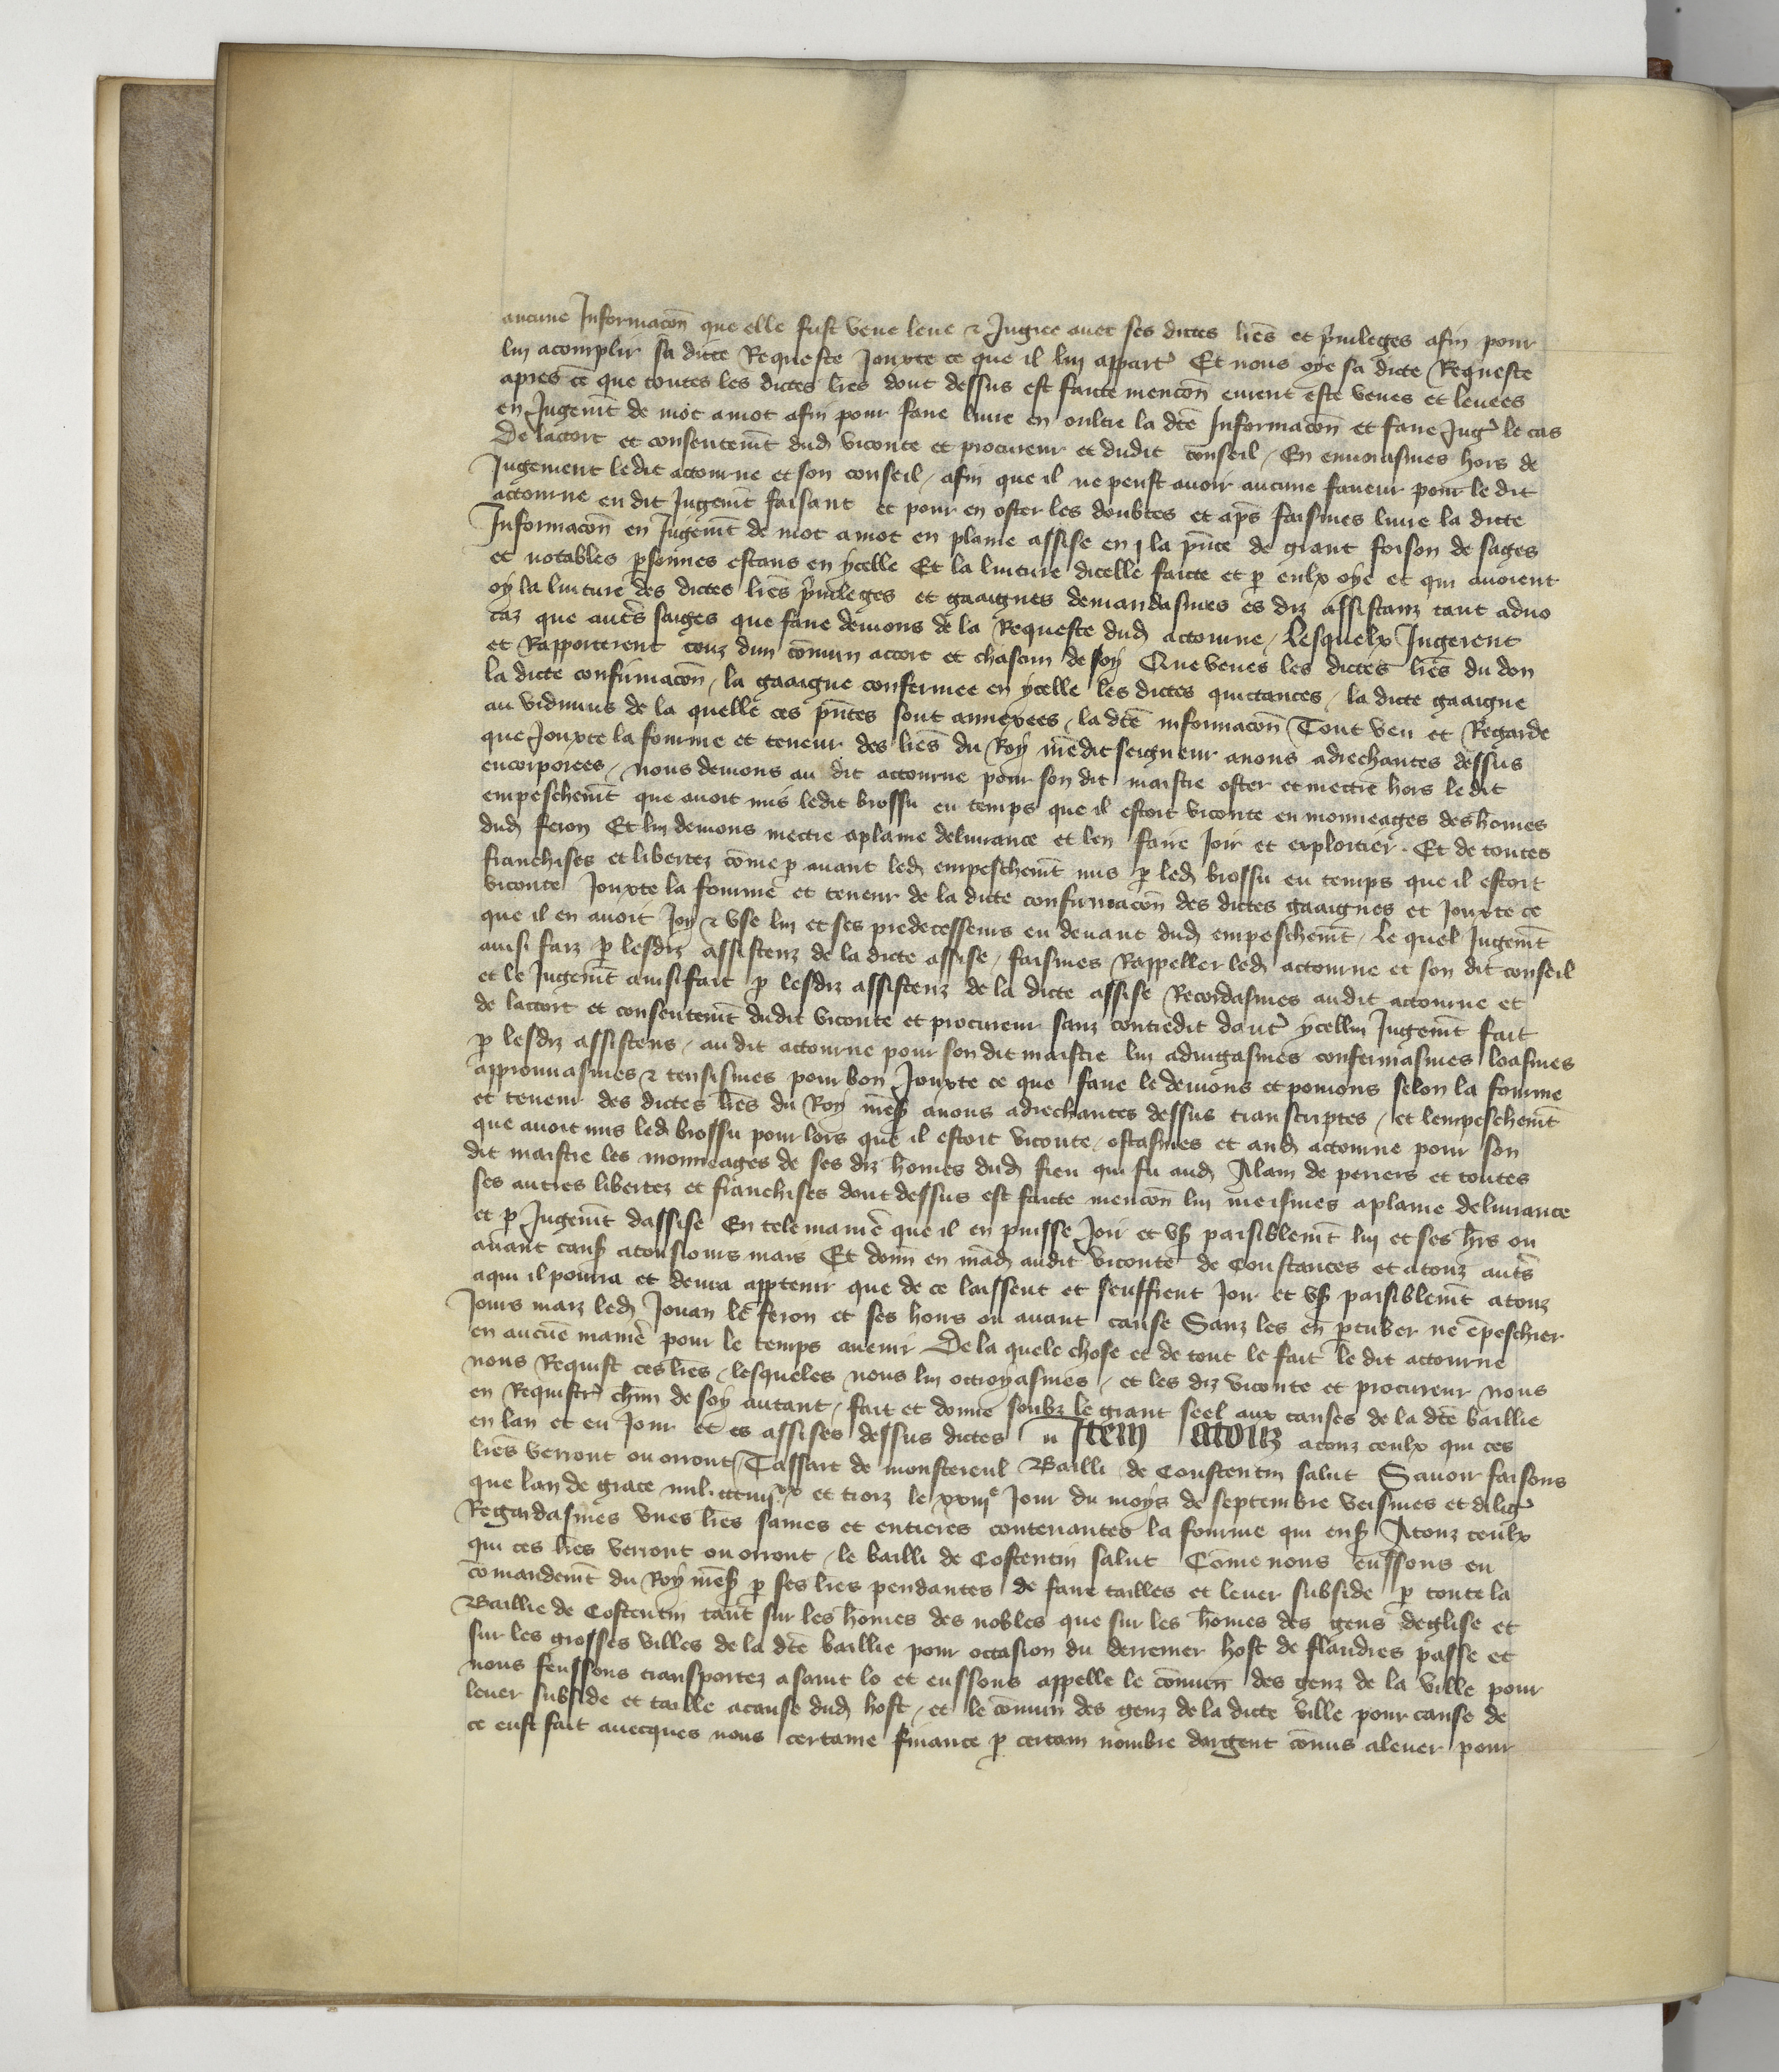 aucune Informacõn que elle fust veue leue & Jugiee auec ses dictes lr̃es et p̃uileges afin pour
lui acomplir sa dicte Requeste Jouxte ce que il lui appart̃ Et nous oye sa dicte Requeste
apres ce que toutes les dictes lr̃es dont dessus est faicte mencõn eurent este veues et leuees
en Jugem̃t de mot a mot afin pour faire lirre en oultre la dc̃e Informacõn et faire Jug̃ le cas
De lacort et consentem̃t dud viconte et procureur et dudit conseil / En enuoiasmes hors de
Jugement ledit actourne et son conseil / afin que il ne peust auoir aucune faueur pour le dit
actourne en dit Jugem̃t faisant et pour en oster les doubtes et ap̃s feismes lirre la dicte
Informacõn en Jugem̃t de mot a mot en plaine assise en la p̃nce de grant foison de sages
et notables p̃sonnes estans en ycelle Et la lutture dicelle faicte et p eulx oye et qui auoient
oy la lutture des dictes lr̃es p̃uileges et gaaignes demandasmes es diz assistanz tant aduo
caz que aut̃s saiges que faire deuions de la Requeste dud actourne / Lesquelx Jugerent
et Rapporterent touz dun cõmun accort et chascun de soy Que veues les dictes lr̃es du don
la dicte confirmacõn / la gaaigne confermee en ycelle les dictes quictances / la dicte gaaigne
au vidimus de la quelle ces p̃ntes sont annexees / la dc̃e informacõn Tout veu et Regarde
que Jouxte la fourme et teneur des lr̃es du Roy ñredit seigneur a nous adrechantes dessus
encorporees / nous deuions au dit actourne pour son dit maistre oster et mectre hors le dit
empeschem̃t que auoit mis ledit brossu eu temps que il estoit viconte en monneages des hõmes
dud feron Et lui deuions mectre a plaine deliurance et len faire Joir et exploictier . Et de toutes
franchises et libertez cõme p auant led empeschem̃t mis p led brossu eu temps que il estoit
viconte Jouxte la fourme et teneur de la dicte confirmacõn des dictes gaaignes et Jouxte ce
que il en auoit Joy & vse lui et ses predecesseurs en deuant dud empeschem̃t / Le quel Jugem̃t
ainsi faiz p lesdiz assistenz de la dicte assise / feismes Rappeller led actourne et son dit conseil
et le Jugem̃t ainsi fait p lesdiz assistenz de la dicte assise Recordasmes audit actourne et
de lacort et consentem̃t dudit viconte et procureur sanz contredit daut̃ ycellui Jugem̃t fait
p lesdiz assistens / au dit actourne pour son dit maistre lui adiugasmes confermasmes loasmes
approuuasmes & tensismes pour bon Jouxte ce que faire le deuions et pouions selon la fourme
et teneur des dictes lr̃es du Roy ñres a nous adrechantes dessus transcriptes / et lempeschem̃t
que auoit mis led brossu pour lors que il estoit viconte / ostasmes et aud actourne pour son
dit maistre les monneages de ses diz hõmes dud fieu qui fu aud Alain de periers et toutes
ses autres libertez et franchises dont dessus est faicte mencõn lui meismes a plaine deliurance
et p Jugem̃t dassise En tele manie que il en puisse Joir et vs paisiblem̃t lui et ses hr̃s ou
aiant caus a tousiours mais Et donn en mãd audit viconte de Coustances et a touz aut̃s
a qui il pourra et deura appartenir que de ce laissent et seuffrent Joir et vs paisiblem̃t a touz
Jours maiz led Jouan le feron et ses hoirs ou aiant cause Sanz les en p̃turber ne ẽpeschier
en aucũe manie pour le temps auenir De la quele chose et de tout le fait le dit actourne
nous Requist ces lr̃es / lesqueles nous lui octroyasmes / et les diz viconte et procureur nous
en Requistr̃ ch̃un de soy autant / fait et donne soubz le grant seel aux causes de la dc̃e baillie
en lan et eu Jour et es assises dessus dictes Item atouz a touz ceulx qui ces
lr̃es verront ou orront / Tassart de monstereul Bailli de Coustentin salut Sauoir faisons
que lan de grace mil. et troiz le xxiiie Jour du moys de septembre veismes et dilig̃
Regardasmes vnes lr̃es saines et entieres contenantes la fourme qui ens A touz ceulx
qui ces lr̃es verront ou orront / le bailli de Costentin salut Cõme nous eussons eu
cõmandem̃t du Roy ñres p ses lr̃es pendantes de faire tailles et leuer subside p toute la
Baillie de Costentin tant sur les hõmes des nobles que sur les hõmes des gens deglise et
sur les grosses villes de la dc̃e baillie pour occasion du derrenier host de flandres passe et
nous feussons transportez a saint lo et eussons appelle le cõmun des genz de la ville pour
leuer subside et taille a cause dud host / et le cõmun des genz de la dicte ville pour cause de
ce eust fait auecques nous certaine finance p certain nombre dargent cõmis a leuer pour